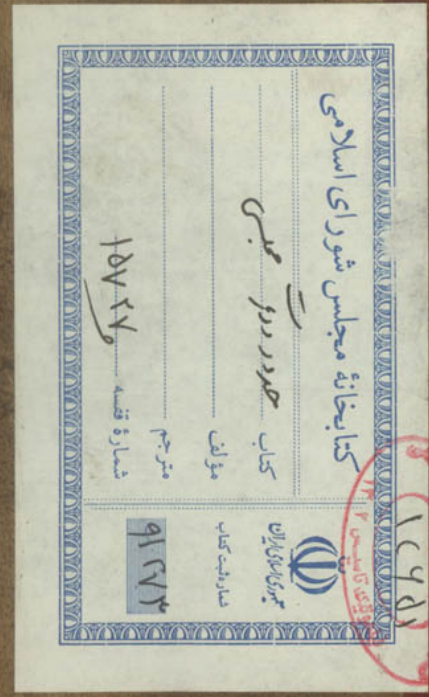 کتابخانهٔ مجلس شورای اسلامی
کتاب حدود و دیات مجلسی
مؤلف
مترجم
شمارهٔ قفسه ۱۵۷۲۷
جمهوری اسلامی ایران
شماره ثبت کتاب
۹۱۲۷۳